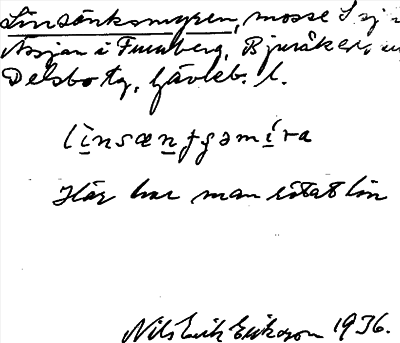 Linsänksmyren, mosse S
Assjan i Furuberg, Bjuråkers
Delsbo tg, Gävleb. l.
Här har man rötat lin
Nils Erik Erikson 1936.